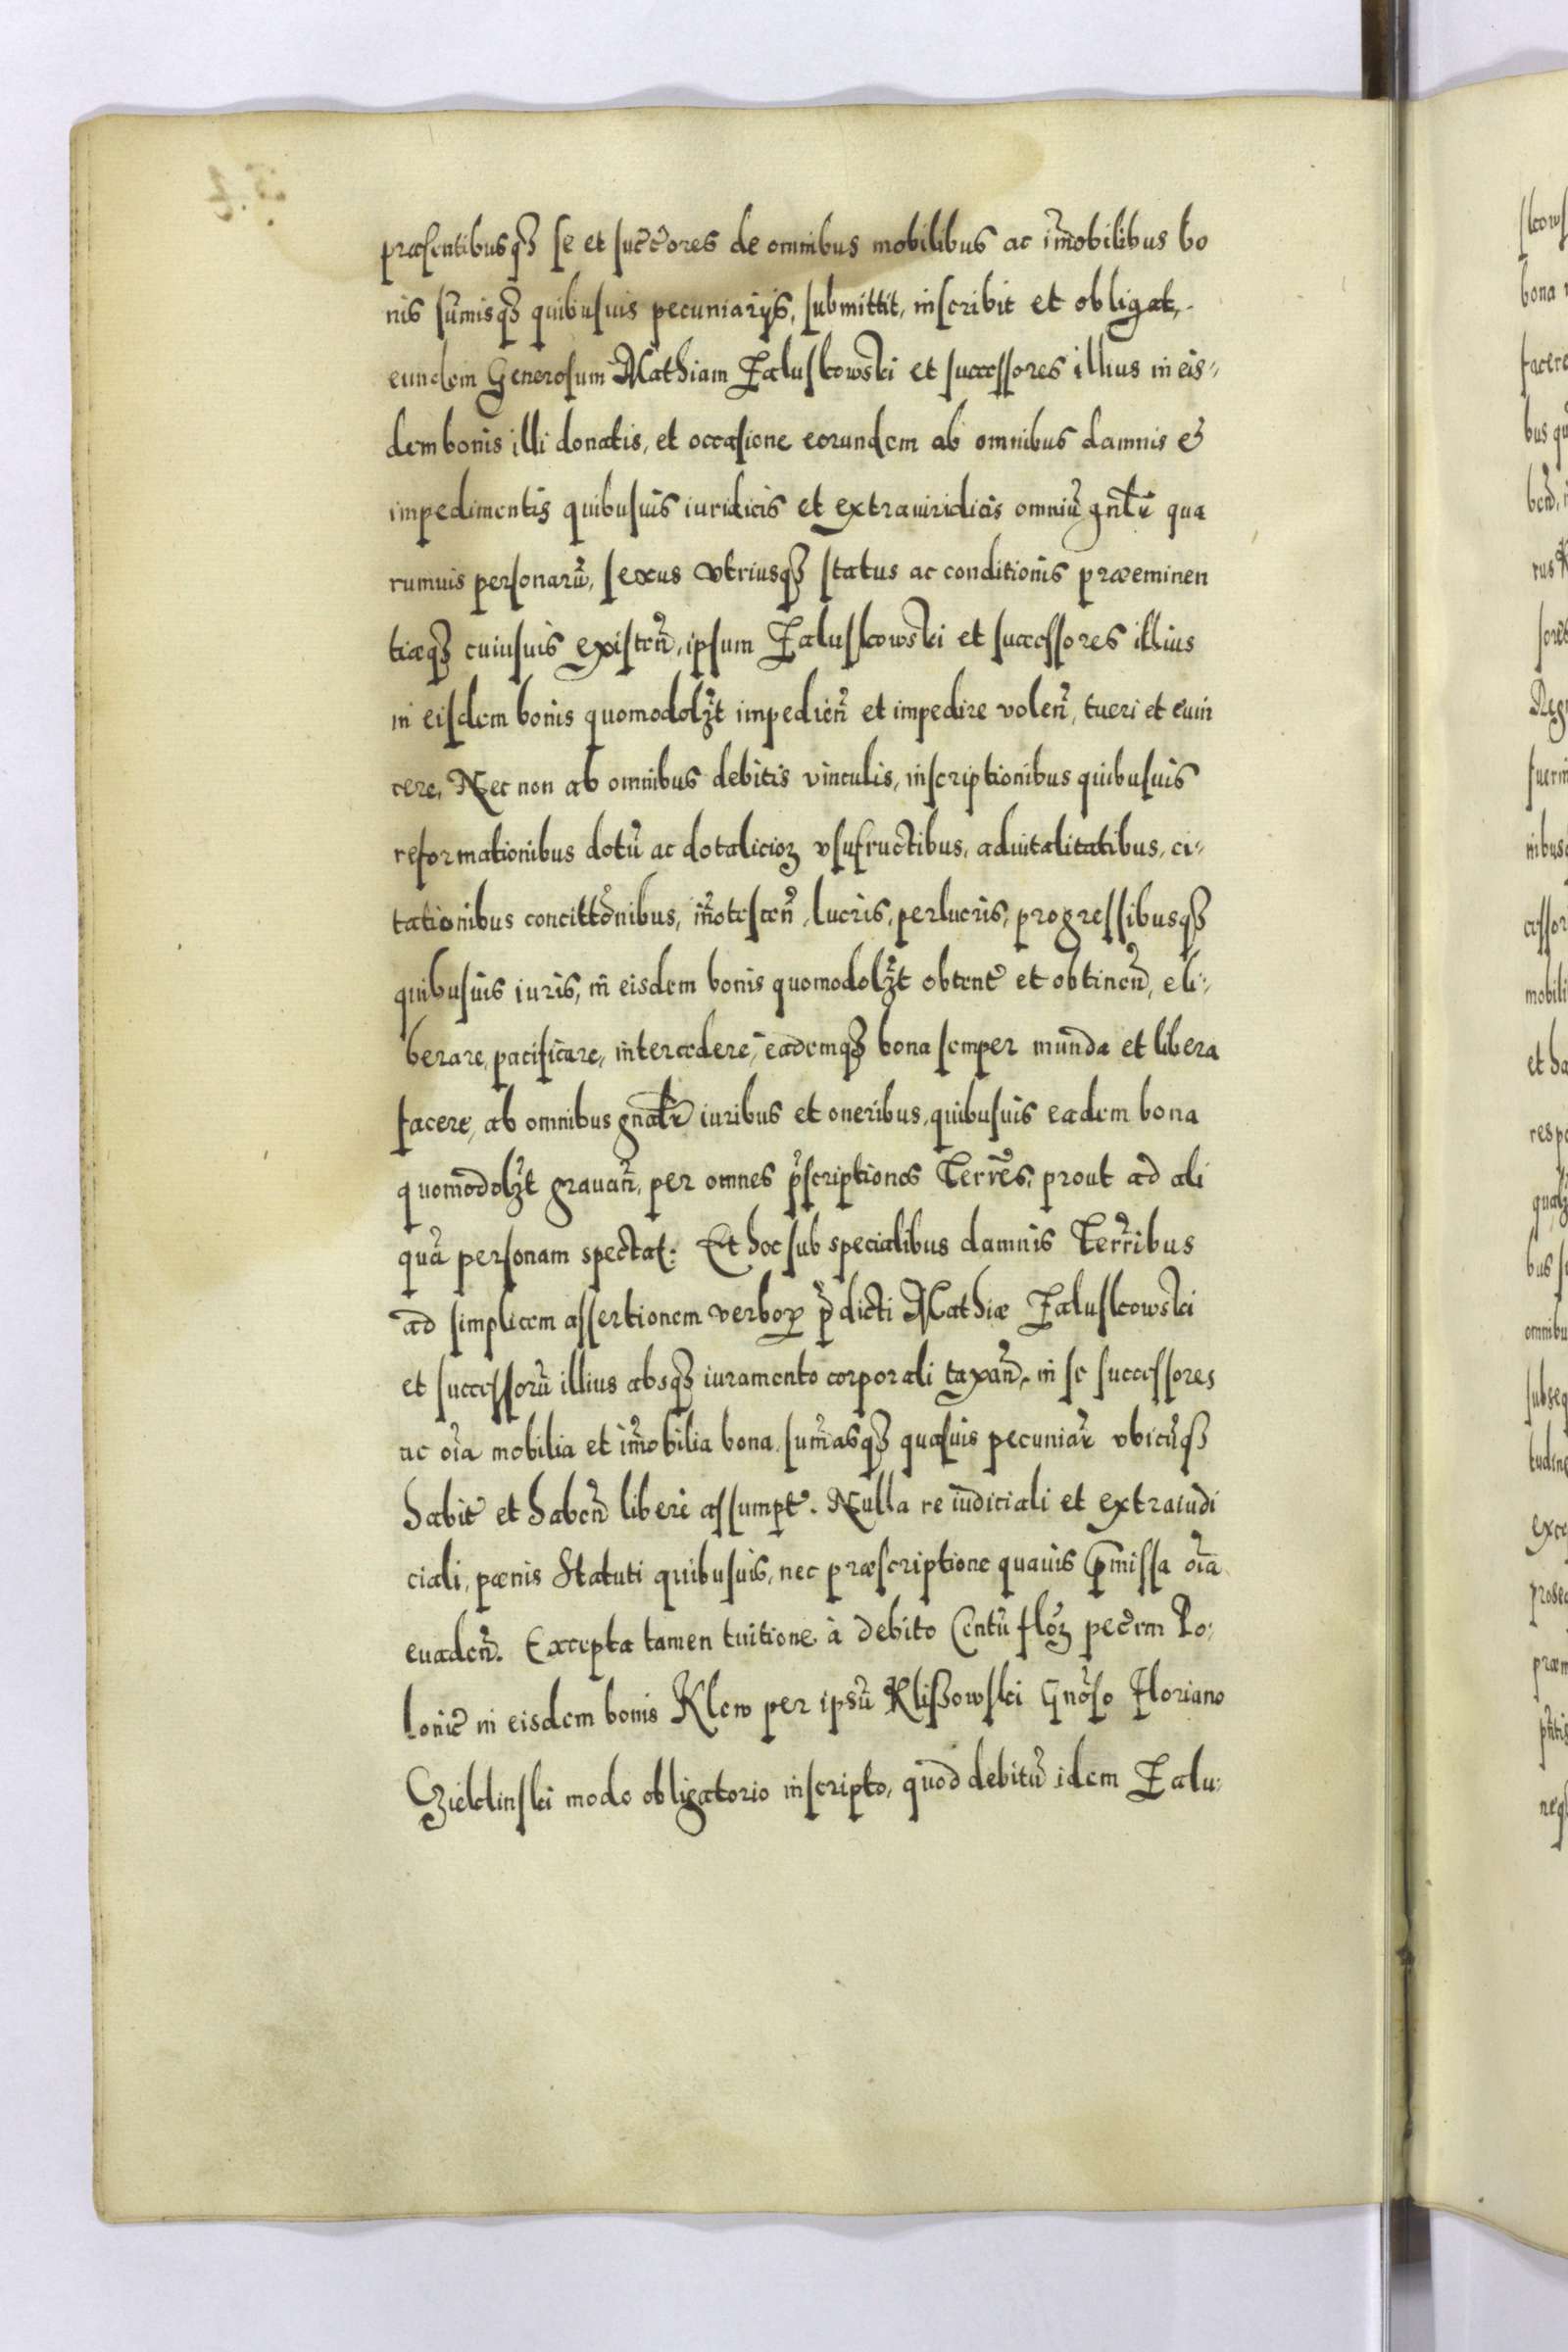 præsentibusqꝫ se et succ̃ores de omnibus mobilibus ac im̃obilibus bo
nis sum̃isqꝫ quibusuis pecuniarijs, submittit, inscribit et obligat,
eundem Generosum Mathiam Załuskowski et successores illius in eis-
dem bonis illi donatis, et occasione eorundem ab omnibus damnis &
impedimentis quibusuis iuridicis et extraiuridicis omniũ gn̄lr̄ qua
rumuis personarũ, sexus vtriusqꝫ status ac conditionis præeminen
tiæqꝫ cuiusuis existen̄, ipsum Załuskowski et successores illius
in eisdem bonis quomodolꝫt impedien̄ et impedire volen̄, tueri et euin
cere, Nec non ab omnibus debitis vinculis, inscriptionibus quibusuis
reformationibus dotũ ac dotalicioꝝ vsufructibus, aduitalitatibus, ci-
tationibus concitt̃onibus, im̃otescen̄, lucris, perlucris, progressibusqꝫ
quibusuis iuris, in eisdem bonis quomodolꝫt obtent̃ et obtinen̄, eli-
berare, pacificare, intercedere, eademqꝫ bona semper munda et libera
facere, ab omnibus gn̄alr̄ iuribus et oneribus, quibusuis eadem bona
quomodolꝫt grauan̄, per omnes p̃scriptiones Terrẽs, prout ad ali
quã personam spectat: Et hoc sub specialibus damnis Terr̃ibus
ad simplicem assertionem verboꝝ p̃dicti Mathiæ Załuskowski
et successorũ illius absqꝫ iuramento corporali taxan̄, in se successores
ac oĩa mobilia et im̃obilia bona, sum̃asqꝫ quasuis pecuniar̃ vbicũqꝫ
habit̃ et haben̄ liberè assumpt̃. Nulla re iudiciali et extraiudi
ciali, pœnis Statuti quibusuis, nec præscriptione quauis p̄missa oĩa
euaden̄. Excepta tamen tuitione à debito Centũ floꝝ pecc̃rm Po-
lonic̃ in eisdem bonis Klew per ipsũ Klißowski Gnõso Floriano
Czieklinski modo obligatorio inscripto, quod debitũ idem Zału-